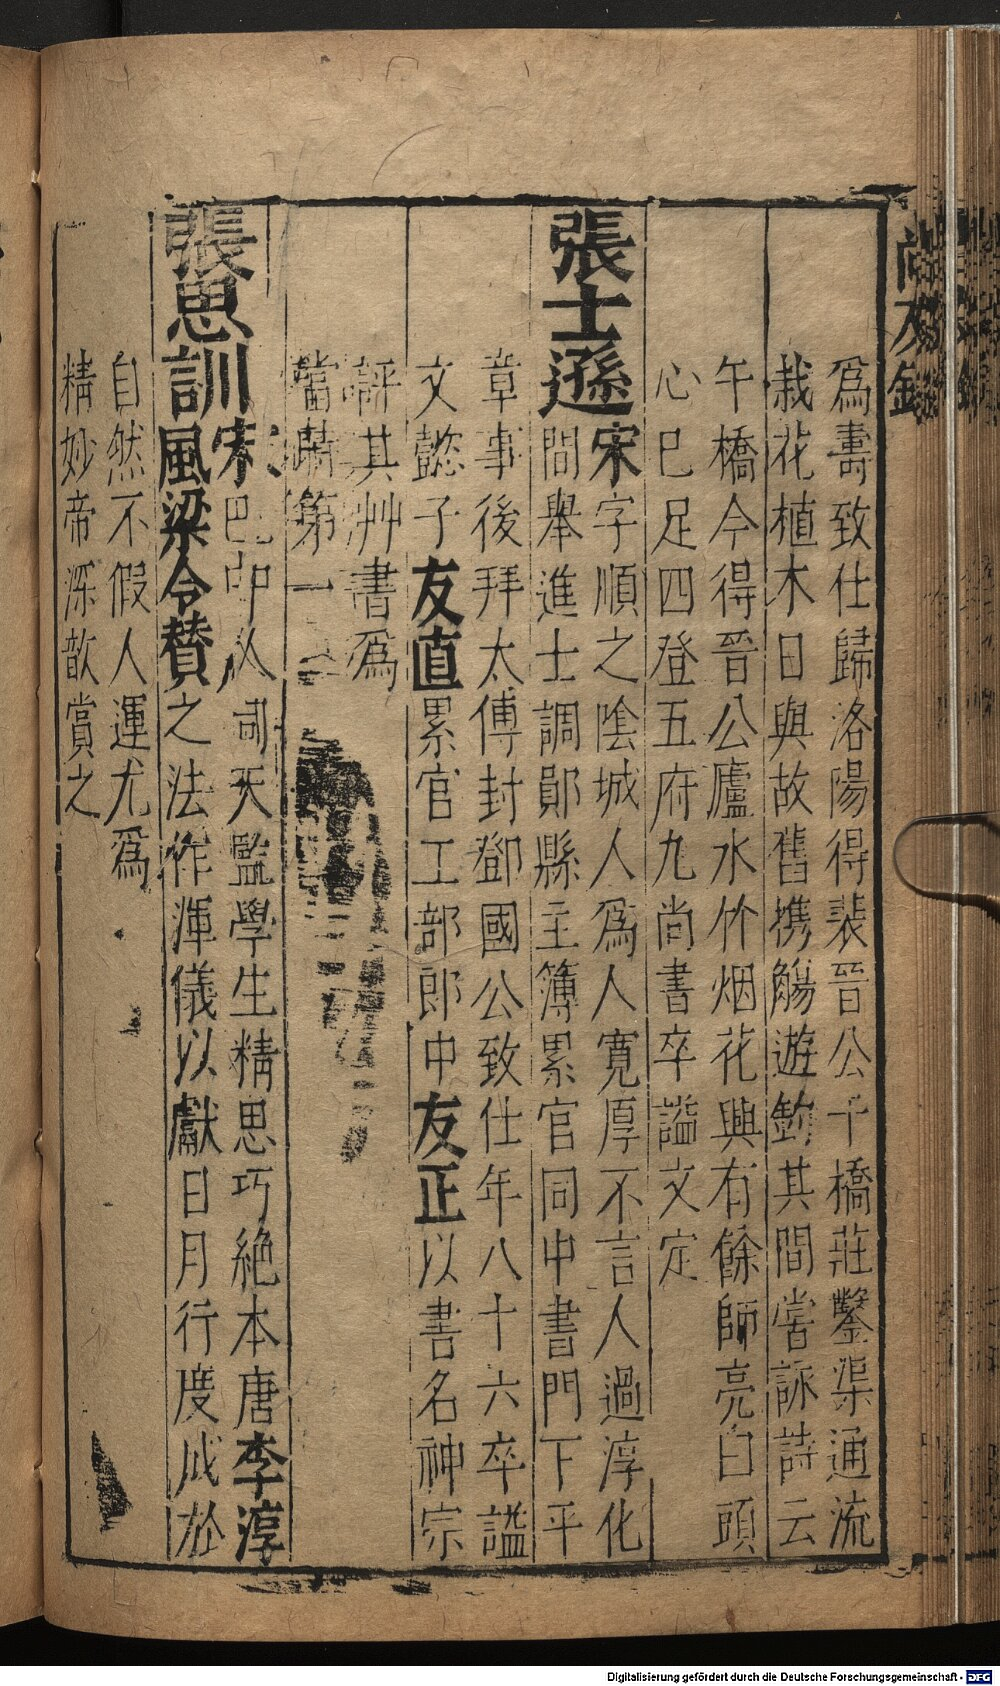 尚友錄
為壽致仕歸洛陽得裴晉公午橋莊鑿渠通流
栽花植木日與故舊携觴遊釣其間嘗詠詩云
午橋今得晉公廬水竹烟花興有餘師亮白頭
心已足四登五府九尚書卒謚文定
張士遜宋字順之陰城人為人寬厚不言人過淳化
間舉進士調鄖縣主簿累官同中書門下平
章事後拜太傅封鄧國公致仕年八十六卒謚
文懿子友直累官工部郎中友正以書名神宗
評其艸書為
當時第一
張思訓宋巴中人司天監學生精思巧絕本唐李淳
風梁令贊之法作渾儀以獻日月行度成於
自然不假人運尤為
精妙帝深歆賞之
Digitalisierung gefördert durch die Deutsche Forschungsgemeinschaft - DFG